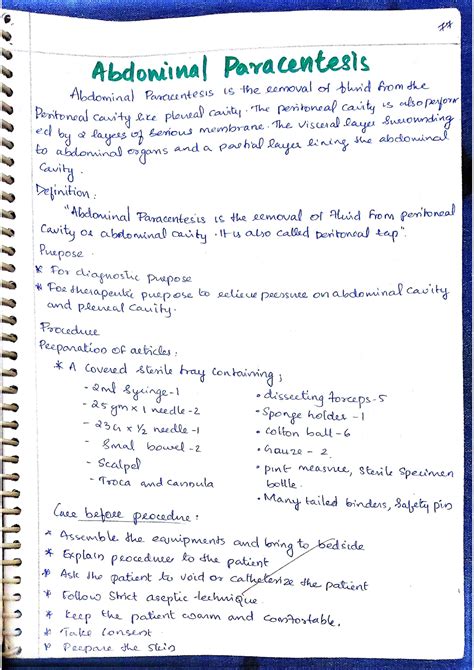 77
Abdominal Paracentesis
Abdominal Paracentesis is the removal of fluid from the
Peritoneal cavity like pleural cavity. The peritoneal cavity is also perform
ed by 2 layers of serious membrane. The visceral layer surrounding
to abdominal organs and a partial layer lining the abdominal
Cavity.
Definition:
"Abdominal Paracentesis is the removal of fluid from peritoneal
Cavity or abdominal cavity. It is also called peritoneal tap".
Purpose
* For diagnostic purpose
* For therapeutic purpose to relieve pressure on abdominal cavity
and pleural cavity.
Procedure
Preparation of articles:
* A covered sterile tray containing;
- 2ml Syringe-1
- 25 gm x 1 needle-2
- 23G x ½ needle-1
- Smal bowel-2
- Scalpel
- Troca and cannula
• dissecting forceps-5
• Sponge holder-1
• Cotton ball-6
• Gauze-2
• pint measure, Sterile Specimen
bottle.
• Many tailed binders, Safety pin
Care before procedure:
* Assemble the equipments and bring to bedside
* Explain procedure to the patient
* Ask the patient to void or catheterize the patient
* Follow Strict aseptic technique
* Keep the patient warm and comfortable.
* Take Consent
* Prepare the skin